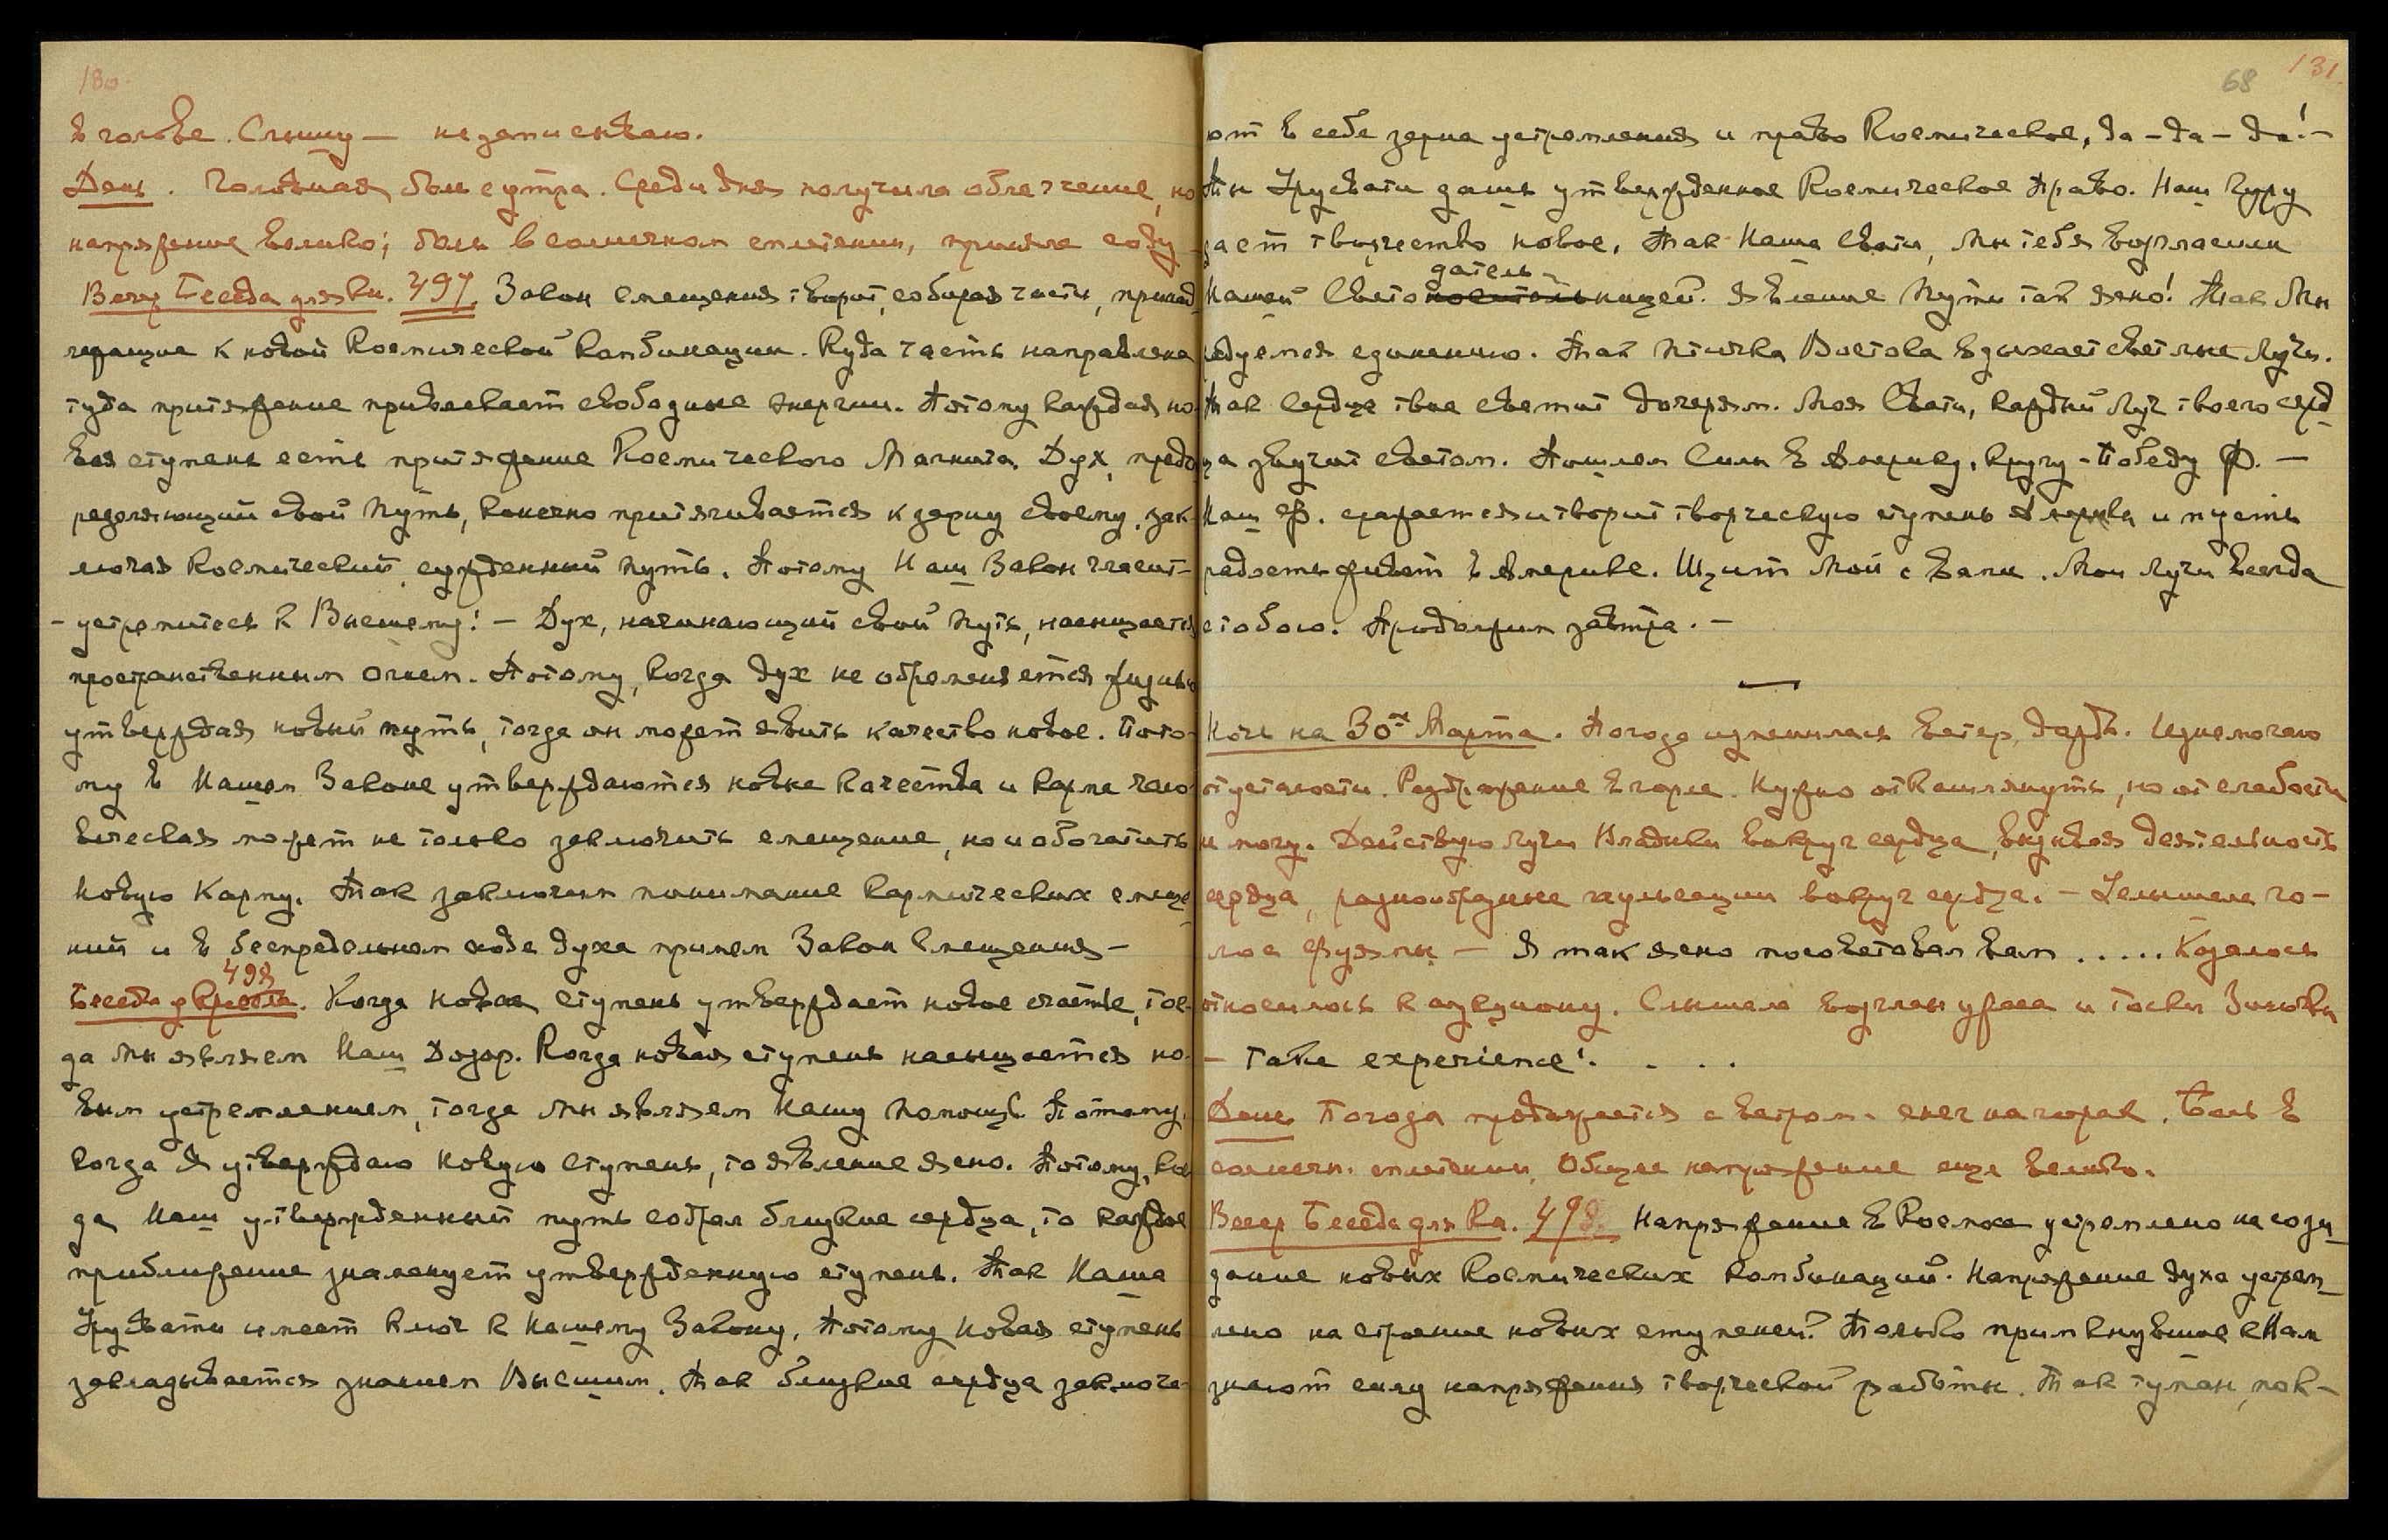 130.
в голове. Слышу — не записываю.
День. Головная боль с утра. Среди дня получила облегчение, но
напряжение велико; боль в солнечном сплетении, приняла соду
Вечер Беседа для кн. 497. Закон смещения творит, собирая части, принад
лежащие к новой Космической комбинации. Куда часть направлена
туда притяжение привлекает свободные энергии. Потому каждая но-
вая ступень есть притяжение Космического Магнита. Дух, предо
ределяющий свой путь, конечно притягивается к зерну своему, зак-
лючая Космический, сужденный путь. Потому Наш Закон гласит-
- устремитесь к Высшему! — Дух, начинающий свой путь, насыщается
пространственным огнем. Потому, когда дух не обременяется жизнью
утверждая новый путь, тогда он может явить качество новое. Пото-
му в Нашем Законе утверждаются новые качества и карма чело
веческая может не только заключить смещение, но и обогатить
Новую Карму. Так заключим понимание кармических смеще
ний и в беспредельном ходе духа примем Закон Смещения —
498
Беседа у кресла. Когда новая ступень утверждает новое счастье, тог-
да Мы являем Наш Дозор. Когда новая ступень насыщается но-
вым устремлением, тогда Мы являем Нашу Помощь. Потому,
когда Я утверждаю Новую Ступень, то явление ясно. Потому, ког
да Наш утвержденный путь собрал близкие сердца, то каждое
приближение знаменует утвержденную ступень. Так Наша
Урусвати имеет ключ к Нашему Закону. Потому Новая ступень
закладывается знаком Высшим. Так близкие сердца заключа-
68 131.
ют в себе зерна устремления и право Космическое, да — да — да! —
Мы Урусвати дали утвержденное Космическое Право. Наш Гуру
дает творчество новое. Так Наша Свати, Мы тебя возгласили
датель
Нашей Светоносительницей. Явление Пути так ясно! Так Мы
радуемся единению. Так Птичка Востока вдыхает светлые Лучи.
Так Сердце твое светит дочерям. Моя Свати, каждый Луч твоего серд
ца звучит светом. Пошлем Силы в Америку, кругу - Победу Ф. —
Наш Ф. сражается и творит творческую ступень Америки и пусть
радость живет в Америке. Щит Мой с Вами. Мои Лучи всегда
с тобою. Продолжим завтра. —
Ночь на 30ое Марта. Погода изменилась ветер, дождь. Изнемогаю
от усталости. Раздражение в горле. Нужно откашлянуть, но от слабости
не могу. Действую Лучи Владыки вокруг сердца, вызывая деятельность
сердца, разнообразные пульсации вокруг сердца. — Услышала го-
лос Фуямы — Я так ясно посоветовал вам ..... Казалось
относилось к аукциону. Слышала возглас ужаса и тоски Зиночки
— Take experience! . . .
День Погода продолжается с ветром. снег на горах. Боль в
солнечн. сплетении, Общее напряжение еще велико.
Вечер Беседа для кн. 498. Напряжение в Космосе устремлено на сози
дание новых Космических комбинаций. Напряжение духа устрем
лено на строение новых ступеней. Только примкнувшие к Нам
знают силу напряжения творческой работы. Так туман, пок-